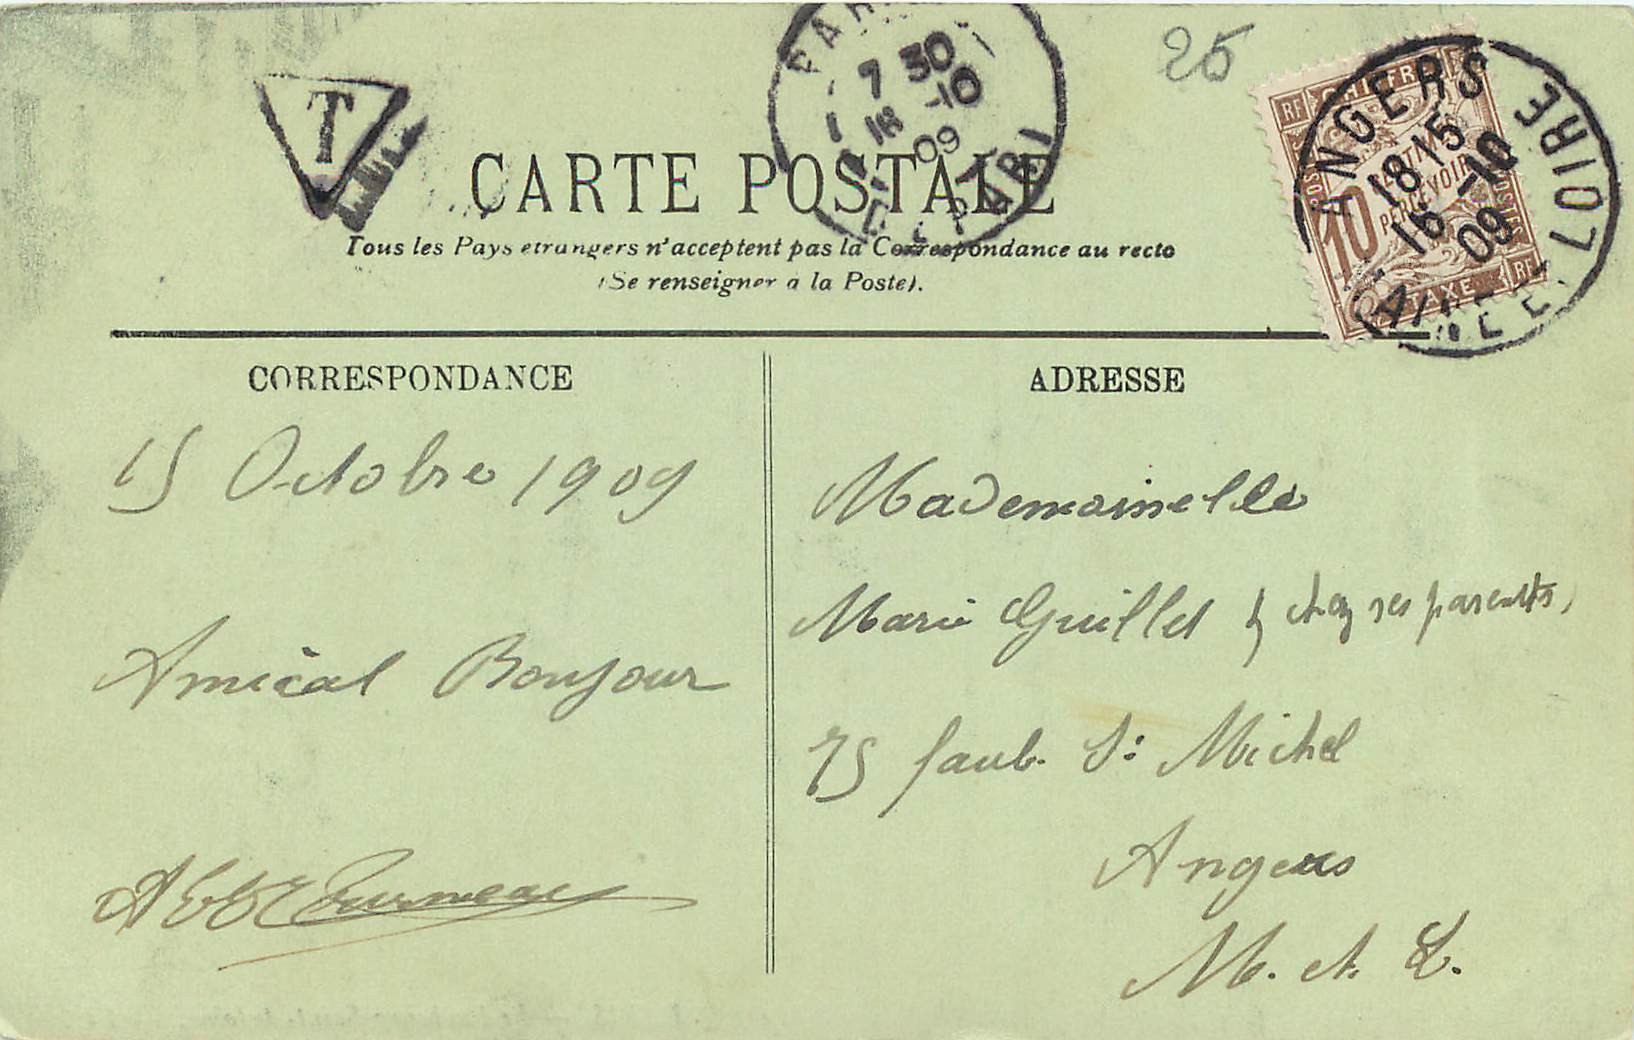 25
T
PAR
7 30
16 -10
09
DEPART
ANGERS
18 15
16 -10
09
LOIRE
RF
CHIFFRE
CENTIMES
A PERCEVOIR
10
POSTES
TAXE
RF
CARTE POSTALE
Tous les Pays étrangers n'acceptent pas la Correspondance au recto
(Se renseigner à la Poste).
CORRESPONDANCE
15 Octobre 1909
Amical Bonjour
ADRESSE
Mademoiselle
Marie Guillet, chez ses parents,
75 faub. St Michel
Angers
M. et L.